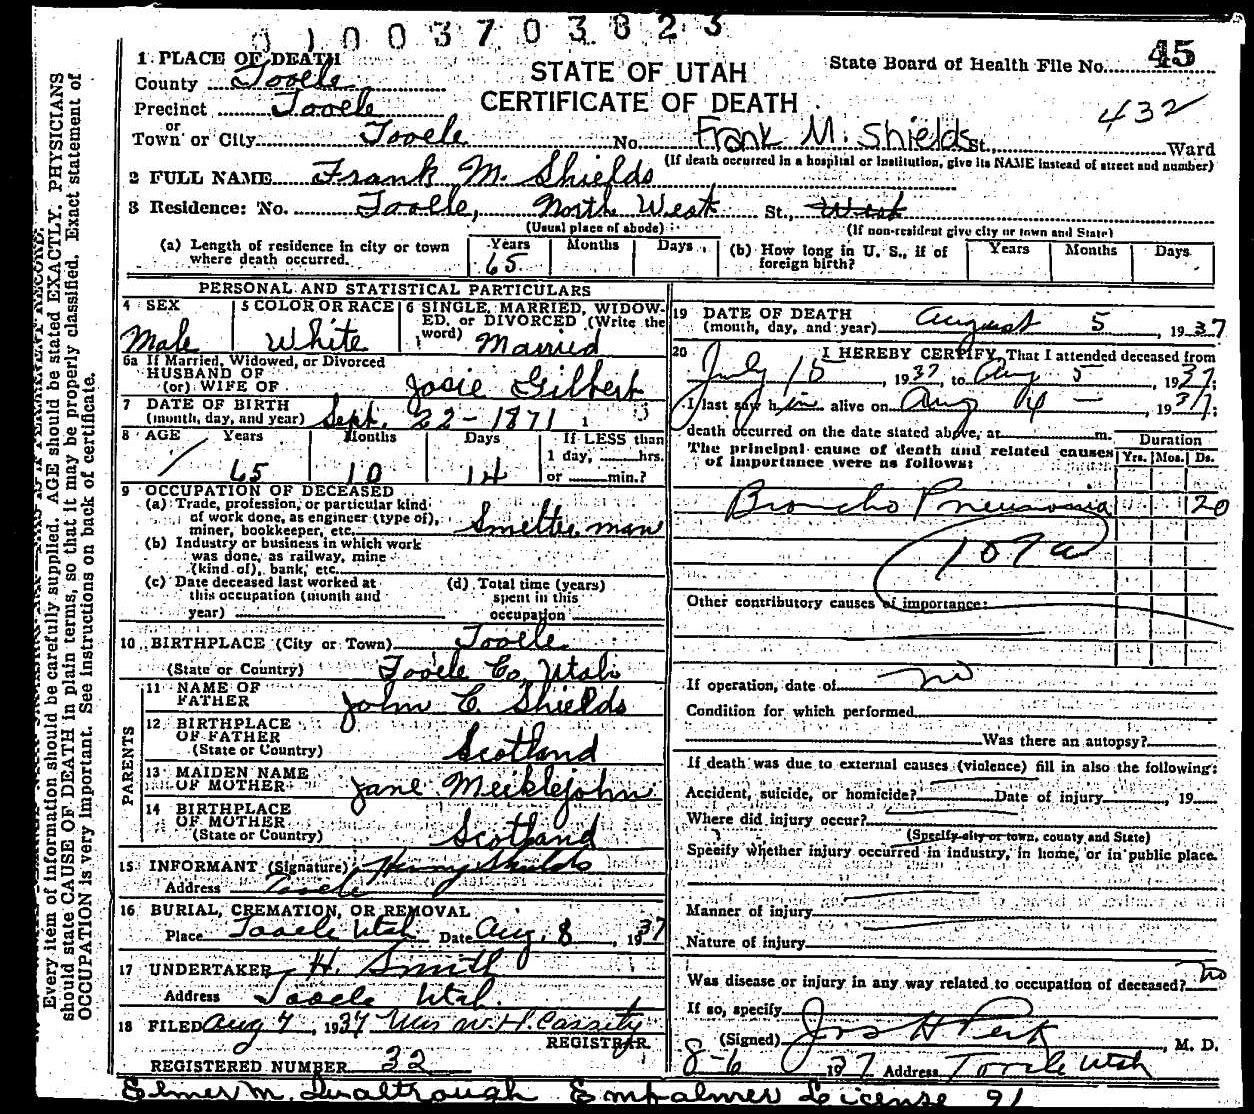 0 1 0 0 3 7 0 3 8 2 3
1 PLACE OF DEATH
State Board of Health File No. 45
County Tooele
STATE OF UTAH
Precinct Tooele
CERTIFICATE OF DEATH
432
or
Town or City Tooele No. Frank M. Shields St., Ward
(If death occurred in a hospital or institution, give its NAME instead of street and number)
2 FULL NAME Frank M. Shields
3 Residence: No. Tooele, North West St., West
(Usual place of abode) (If non-resident give city or town and State)
(a) Length of residence in city or town where death occurred. Years 65 Months Days
(b) How long in U. S., if of foreign birth? Years Months Days
PERSONAL AND STATISTICAL PARTICULARS
4 SEX Male
5 COLOR OR RACE White
6 SINGLE, MARRIED, WIDOW-
ED, or DIVORCED (Write the
word) Married
6a If Married, Widowed, or Divorced
HUSBAND OF
(or) WIFE OF Josie Gilbert
7 DATE OF BIRTH
(month, day, and year) Sept. 22-1871
8 AGE Years 65 Months 10 Days 14
If LESS than
1 day, hrs.
or min.?
9 OCCUPATION OF DECEASED
(a) Trade, profession, or particular kind
of work done, as engineer (type of),
miner, bookkeeper, etc. Smelter man
(b) Industry or business in which work
was done, as railway, mine
(kind of), bank, etc.
(c) Date deceased last worked at
this occupation (month and
year)
(d) Total time (years)
spent in this
occupation
10 BIRTHPLACE (City or Town) Tooele
(State or Country) Tooele Co, Utah
PARENTS
11 NAME OF
FATHER John C. Shields
12 BIRTHPLACE
OF FATHER
(State or Country) Scotland
13 MAIDEN NAME
OF MOTHER Jane Meiklejohn
14 BIRTHPLACE
OF MOTHER
(State or Country) Scotland
15 INFORMANT (Signature) Henry Shields
Address Tooele
16 BURIAL, CREMATION, OR REMOVAL
Place Tooele Utah Date Aug. 8, 1937
17 UNDERTAKER H. Smith
Address Tooele Utah.
18 FILED Aug 7, 1937 Mrs W. H. Cassity
REGISTRAR.
REGISTERED NUMBER 32
19 DATE OF DEATH
(month, day, and year) August 5, 1937
20 I HEREBY CERTIFY, That I attended deceased from
July 15, 1937, to Aug 5, 1937;
I last saw him alive on Aug 4, 1937;
death occurred on the date stated above, at m.
The principal cause of death and related causes
of importance were as follows:
Duration
Yrs. Mos. Ds.
Broncho Pneumonia 20
107a
Other contributory causes of importance:
If operation, date of no
Condition for which performed
Was there an autopsy?
If death was due to external causes (violence) fill in also the following:
Accident, suicide, or homicide? Date of injury, 19
Where did injury occur?
(Specify city or town, county and State)
Specify whether injury occurred in industry, in home, or in public place.
Manner of injury
Nature of injury
Was disease or injury in any way related to occupation of deceased? no
If so, specify
(Signed) Jos H Peck, M. D.
8-6 1937 Address Tooele Utah
Elmer M. Qualtrough Embalmer License 91
Every item of information should be carefully supplied. AGE should be stated EXACTLY. PHYSICIANS
should state CAUSE OF DEATH in plain terms, so that it may be properly classified. Exact statement of
OCCUPATION is very important. See instructions on back of certificate.